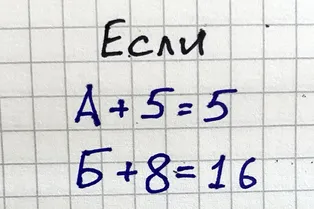 Если
А + 5 = 5
Б + 8 = 16